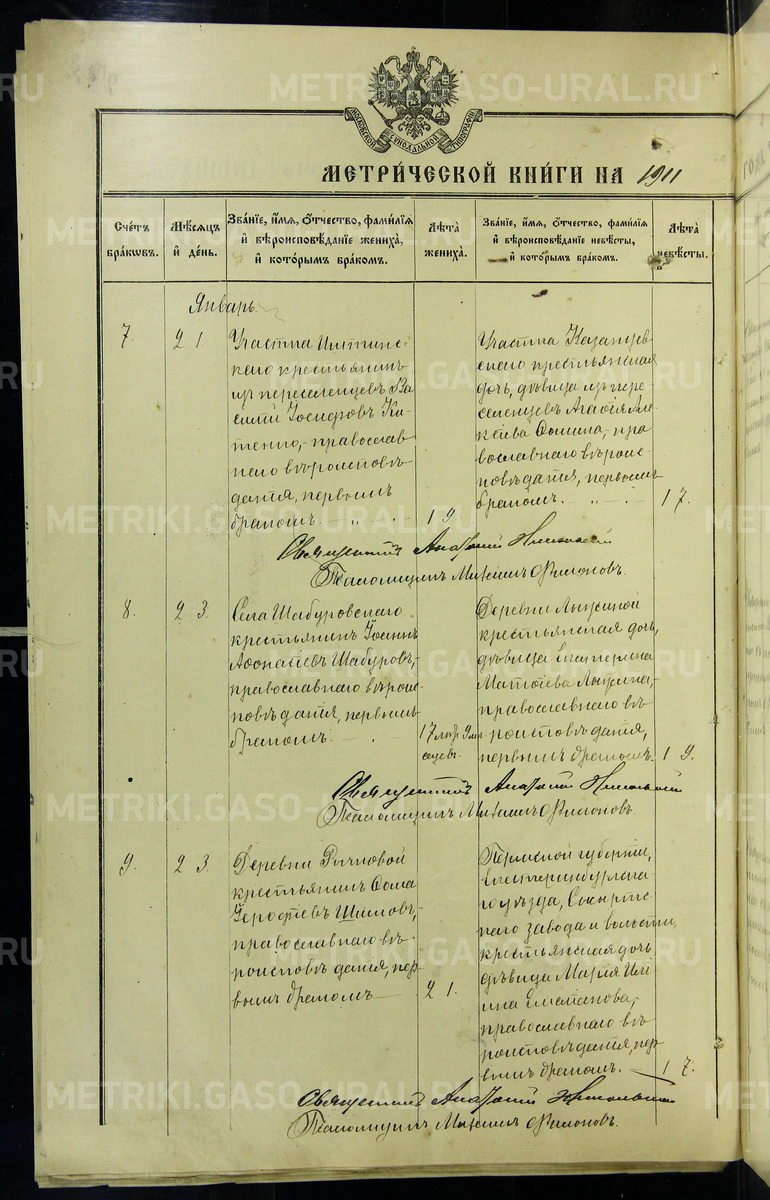 МОСКОВСКОЙ СѴНОДАЛЬНОЙ ТИПОГРАФІИ
МЕТРИ́ЧЕСКОЙ КНИ́ГИ НА 1911
Сче́тъ бра́кѡвъ.
Мѣ́сяцъ и҆ де́нь.
Зва́нїе, и҆́мѧ, ѻ҆́тчество, фамилїѧ и҆ вѣроисповѣ́данїе жениха̀, и҆ кото́рымъ бра́комъ.
Лѣ́та жениха̀.
Зва́нїе, и҆́мѧ, ѻ҆́тчество, фами́лїѧ и҆ вѣроисповѣ́данїе невѣ́сты, и҆ кото́рымъ бра́комъ.
Лѣ́та невѣ́сты.
Январь
7.
21
Участка
каго крестьянинъ
изъ переселенцевъ Ва
силій Іосифовъ Ки
тенко, православ
наго вѣроисповѣ
данія, первымъ
бракомъ.
19.
Участка Казанцев
скаго крестьянская
дочь, дѣвица изъ пере
селенцевъ Агафія Але
ксѣева Сомина, пра
вославнаго вѣроис
повѣданія, первымъ
бракомъ.
17.
Священникъ Анатолій Никольскій
Псаломщикъ Михаилъ Филимоновъ.
8.
23.
Села Шабуровскаго
крестьянинъ Іоаннъ
Аѳонасіевъ Шабуровъ,
православнаго вѣроис
повѣданія, первымъ
бракомъ.
17 лѣтъ 9 мѣ
сяцевъ.
Деревни Лыжиной
крестьянская дочь,
дѣвица Екатерина
Матѳіева Лыжина,
православнаго вѣ
роисповѣданія,
первымъ бракомъ.
19.
Священникъ Анатолій Никольскій
Псаломщикъ Михаилъ Филимоновъ.
9.
23.
Деревни
крестьянинъ Ѳома
Іероѳеевъ
православнаго вѣ
роисповѣданія, пер
вымъ бракомъ
21.
Пермской губерніи,
Екатеринбургска
го уѣзда, Сысертс
каго завода и волости,
крестьянская дочь
дѣвица Марія Иль
ина Емельянова,
православнаго вѣ
роисповѣданія, пер
вымъ бракомъ.
17.
Священникъ Анатолій Никольскій
Псаломщикъ Михаилъ Филимоновъ.
METRIKI.GASO-URAL.RU